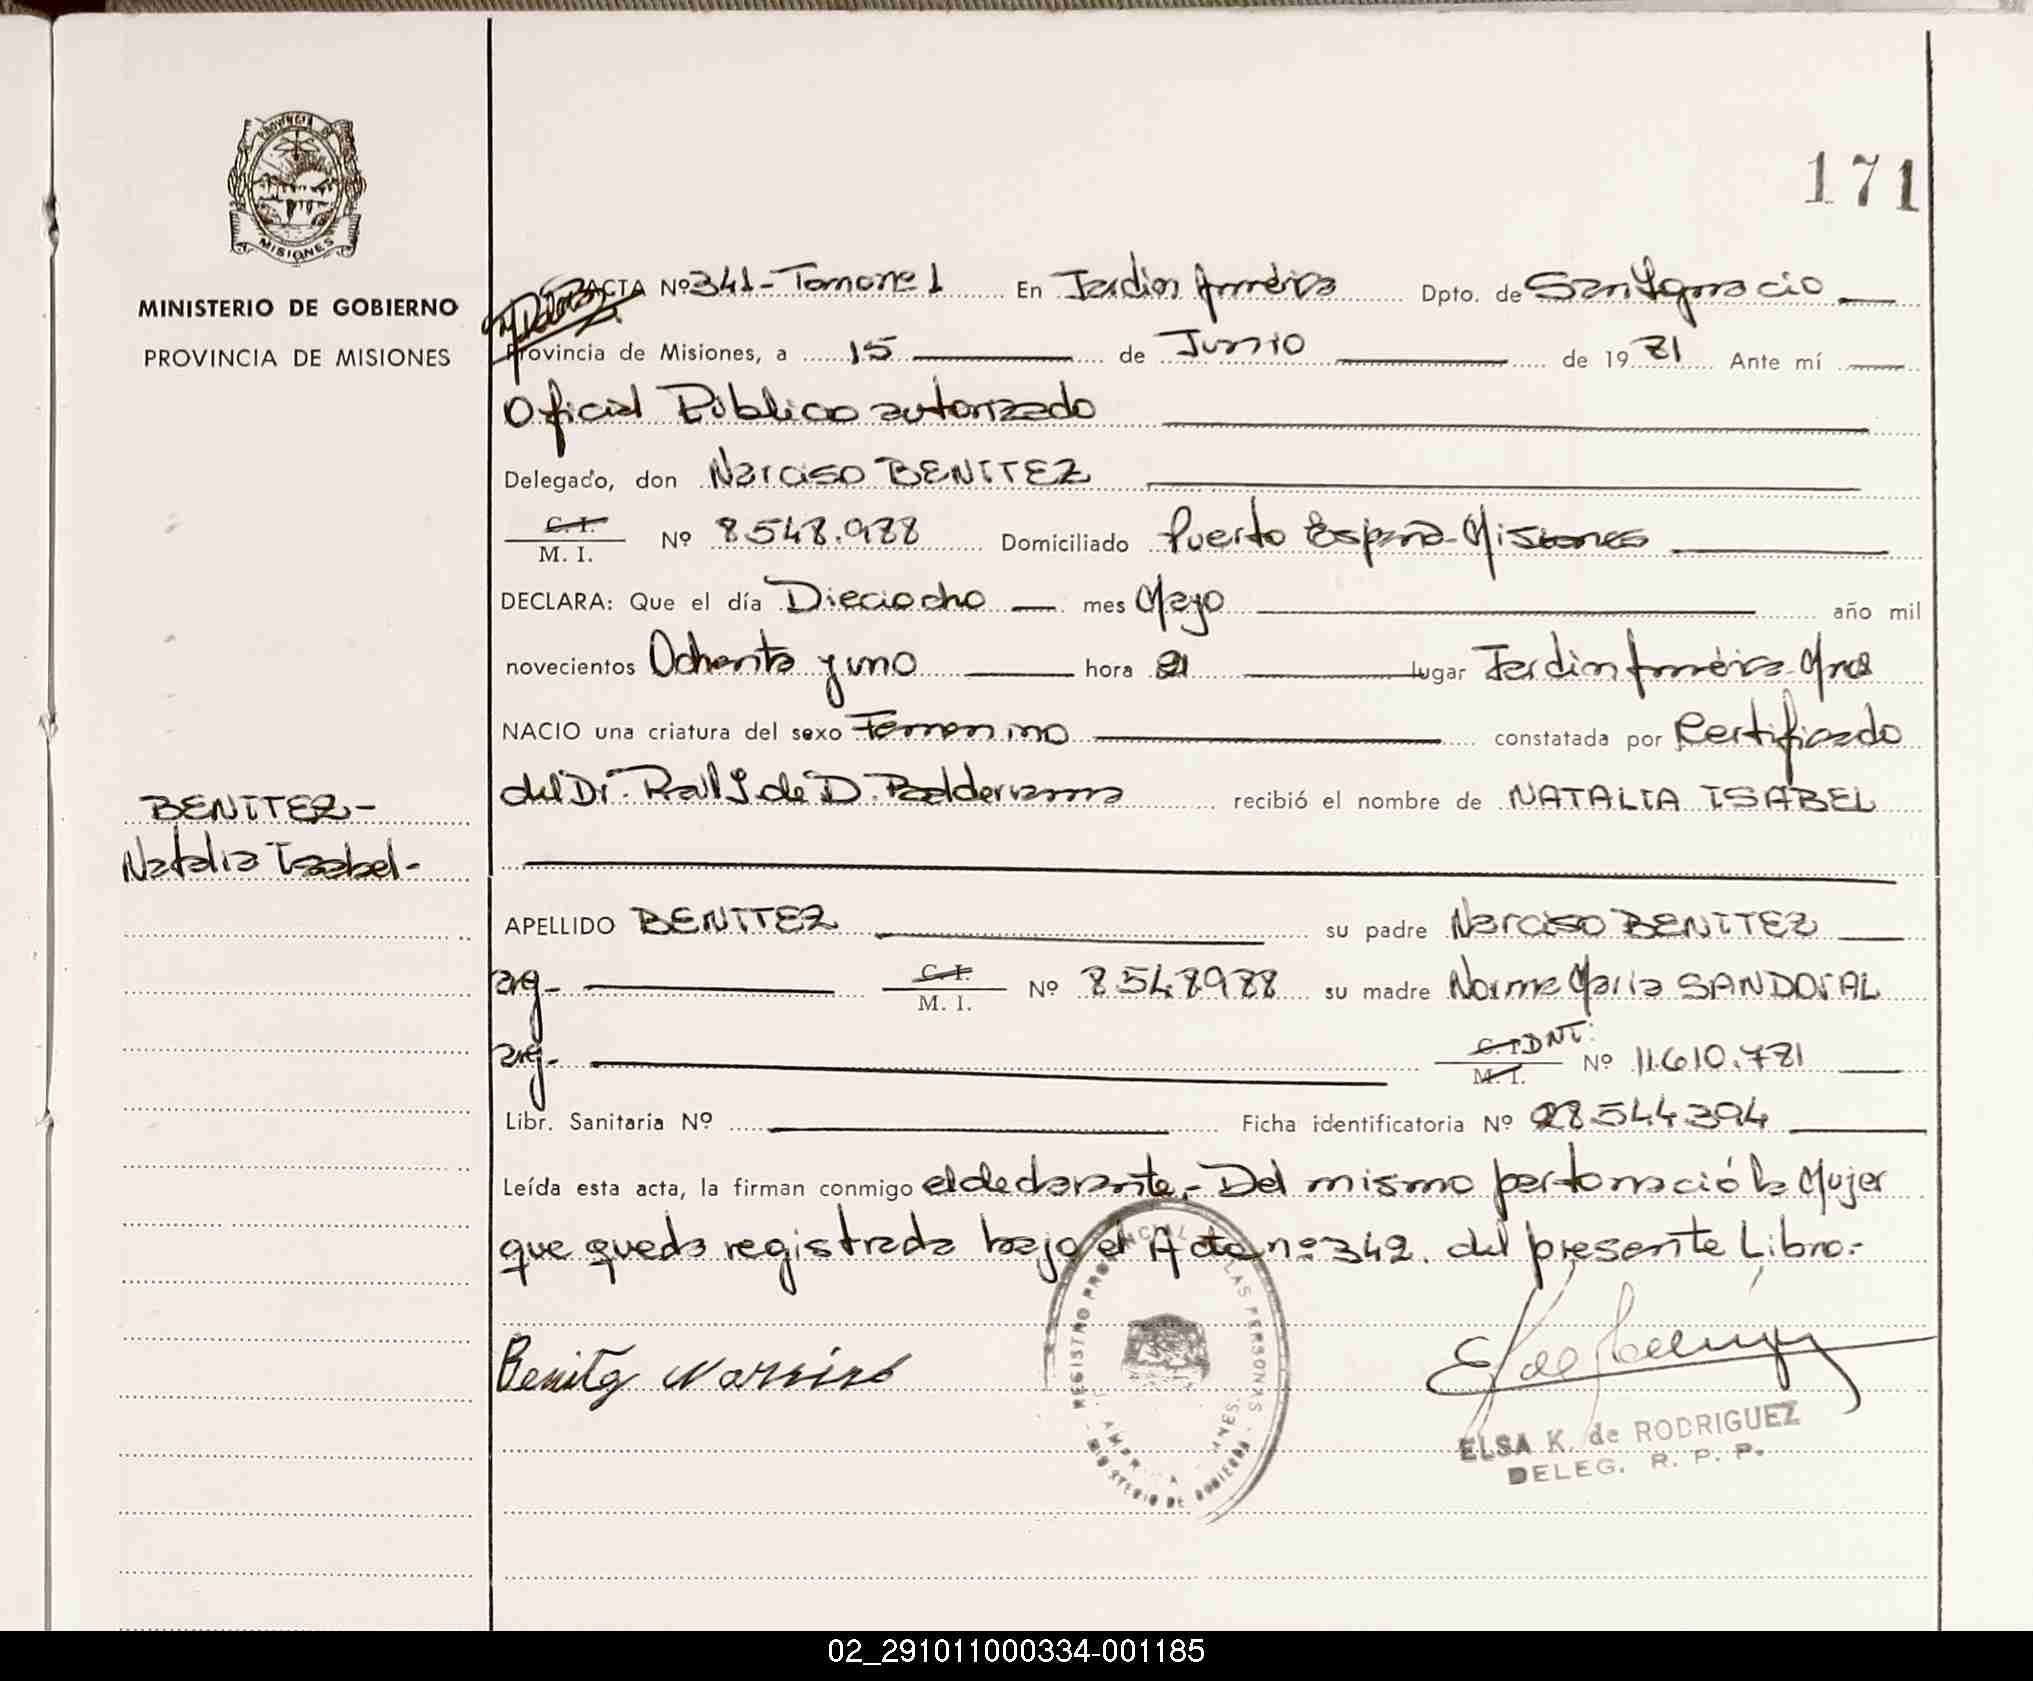 171
PROVINCIA DE
MISIONES
MINISTERIO DE GOBIERNO
PROVINCIA DE MISIONES
ACTA Nº 341 - Tomo nº 1 En Jardin América Dpto. de San Ignacio
Provincia de Misiones, a 15 de Junio de 1981 Ante mí
Oficial Público autorizado
Delegado, don Narciso BENITEZ
C. I.
M. I. Nº 8.548.988 Domiciliado Puerto España-Misiones
DECLARA: Que el día Dieciocho mes Mayo año mil
novecientos Ochenta y uno hora 21 lugar Jardin América-Mnes
NACIO una criatura del sexo Femenino constatada por Certificado
del Dr. Raúl J. de D. Balderrama recibió el nombre de NATALIA ISABEL
BENITEZ-
Natalia Isabel-
APELLIDO BENITEZ su padre Narciso BENITEZ
arg- C. I.
M. I. Nº 8548988 su madre Norma Maria SANDOVAL
arg- C. I. DNI.
M. I. Nº 11.610.781
Libr. Sanitaria Nº Ficha identificatoria Nº 28544394
Leída esta acta, la firman conmigo el declarante.- Del mismo parto nació la Mujer
que queda registrada bajo el Acta nº 342. del presente Libro.-
Benitez Narciso
REGISTRO PROVINCIAL LAS PERSONAS
MINISTERIO DE GOBIERNO
ELSA K. de RODRIGUEZ
DELEG. R. P. P.
02_291011000334-001185